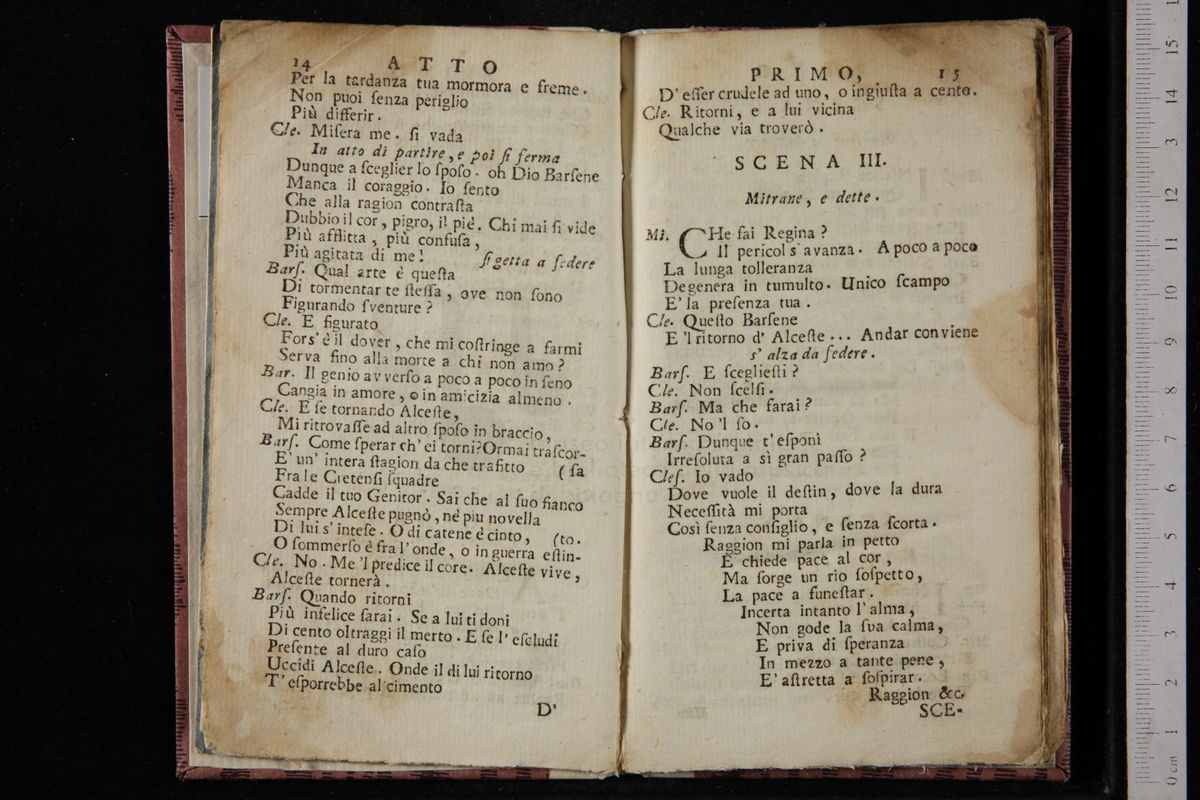 14 ATTO
Per la tardanza tua mormora e freme.
Non puoi ſenza periglio
Più differir.
Cle. Miſera me. ſi vada
In atto di partire, e poi ſi ferma
Dunque a ſceglier lo ſpoſo. oh Dio Barſene
Manca il coraggio. Io ſento
Che alla ragion contraſta
Dubbio il cor, pigro, il piè. Chi mai ſi vide
Più afflitta, più confuſa,
Più agitata di me! ſi getta a ſedere
Barſ. Qual arte è queſta
Di tormentar te ſteſſa, ove non ſono
Figurando ſventure?
Cle. E figurato
Fors' è il dover, che mi coſtringe a farmi
Serva fino alla morte a chi non amo?
Bar. Il genio avverſo a poco a poco in ſeno
Cangia in amore, o in amicizia almeno.
Cle. E ſe tornando Alceſte,
Mi ritrovaſſe ad altro ſpoſo in braccio,
Barſ. Come ſperar ch' ei torni? Ormai traſcor-
E' un' intera ſtagion da che trafitto (ſa
Fra le Cretenſi ſquadre
Cadde il tuo Genitor. Sai che al ſuo fianco
Sempre Alceſte pugnò, nè piu novella
Di lui s' inteſe. O di catene è cinto, (to.
O ſommerſo è fra l' onde, o in guerra eſtin-
Cle. No. Me 'l predice il core. Alceſte vive,
Alceſte tornerà.
Barſ. Quando ritorni
Più infelice ſarai. Se a lui ti doni
Di cento oltraggi il merto. E ſe l' eſcludi
Preſente al duro caſo
Uccidi Alceſte. Onde il di lui ritorno
T' eſporrebbe al cimento
D'
PRIMO, 15
D' eſſer crudele ad uno, o ingiuſta a cento.
Cle. Ritorni, e a lui vicina
Qualche via troverò.
SCENA III.
Mitrane, e dette.
Mi. CHe fai Regina?
Il pericol s' avanza. A poco a poco
La lunga tolleranza
Degenera in tumulto. Unico ſcampo
E' la preſenza tua.
Cle. Queſto Barſene
E 'l ritorno d' Alceſte... Andar conviene
s' alza da ſedere.
Barſ. E ſceglieſti?
Cle. Non ſcelſi.
Barſ. Ma che farai?
Cle. No 'l ſo.
Barſ. Dunque t' eſponi
Irreſoluta a sì gran paſſo?
Cleſ. Io vado
Dove vuole il deſtin, dove la dura
Neceſſità mi porta
Così ſenza conſiglio, e ſenza ſcorta.
Raggion mi parla in petto
E chiede pace al cor,
Ma ſorge un rio ſoſpetto,
La pace a funeſtar.
Incerta intanto l' alma,
Non gode la ſua calma,
E priva di ſperanza
In mezzo a tante pene,
E' aſtretta a ſoſpirar.
Raggion &c.
SCE-